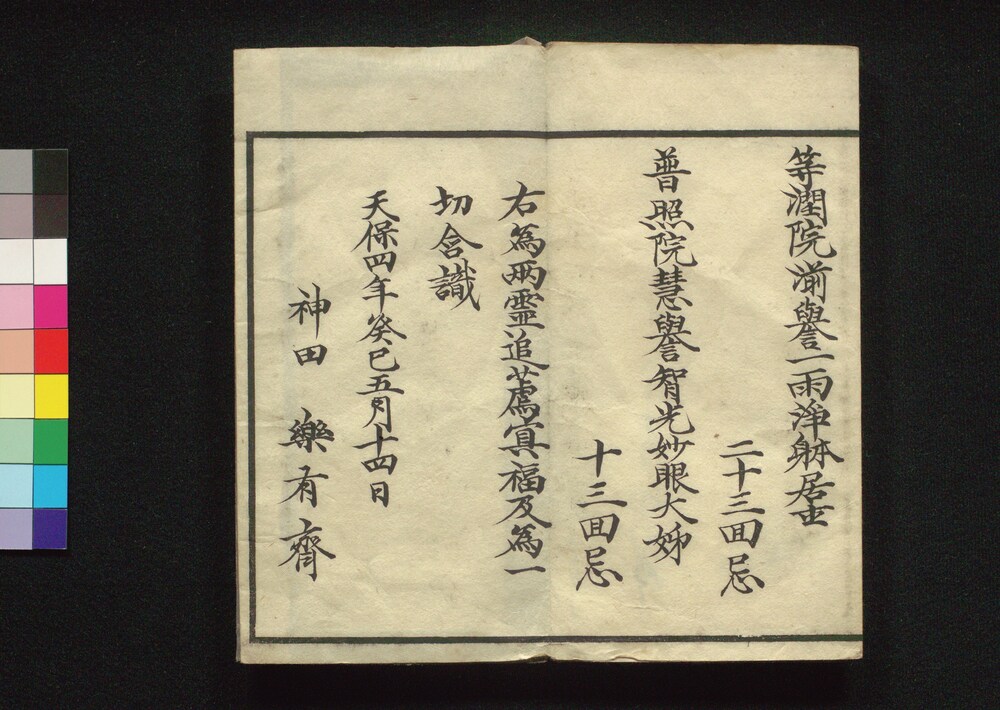 等潤院湔譽一雨淨躰居士
二十三囬忌
普照院慧譽智光妙眼大姊
十三囬忌
右為兩靈追薦冥福及為一
切含識
天保四年癸巳五月十四日
神田 樂有齋